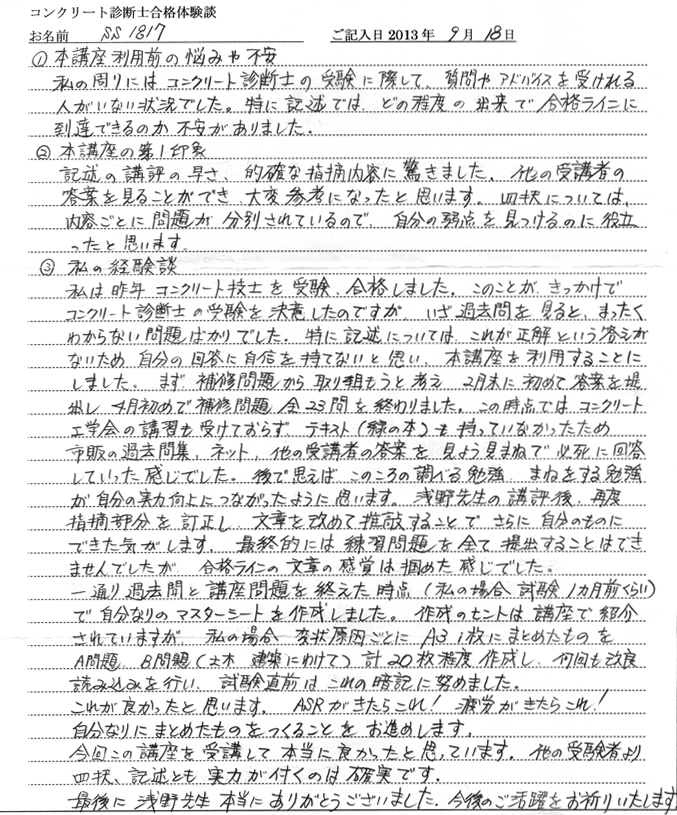 コンクリート診断士合格体験談
お名前 SS1817 ご記入日2013年 9月 18日
①本講座利用前の悩みや不安
私の周りにはコンクリート診断士の受験に際して、質問やアドバイスを受けれる
人がいない状況でした。特に記述では、どの程度の出来で合格ラインに
到達できるのか不安がありました。
②本講座の第1印象
記述の講評の早さ、的確な指摘内容に驚きました。他の受講者の
答案を見ることができ、大変参考になったと思います。四択については、
内容ごとに問題が分別されているので、自分の弱点を見つけるのに役立
ったと思います。
③私の経験談
私は昨年コンクリート技士を受験、合格しました。このことがきっかけで
コンクリート診断士の受験を決意したのですが、いざ過去問を見ると、まったく
わからない問題ばかりでした。特に記述については、これが正解という答えが
ないため自分の回答に自信を持てないと思い、本講座を利用することに
しました。まず、補修問題から取り組もうと考え 2月末に初めて答案を提
出し 4月初めで補修問題全23問を終わりました。この時点ではコンクリート
工学会の講習も受けておらず、テキスト(緑の本)も持っていなかったため
市販の過去問集、ネット、他の受講者の答案を見よう見まねで必死に回答
していった感じでした。後で思えばこのころの調べる勉強、まねをする勉強
が自分の実力向上につながったように思います。浅野先生の講評後、再度
指摘部分を訂正し、文章を改めて推敲することでさらに自分のものに
できた気がします。最終的には練習問題を全て提出することはでき
ませんでしたが、合格ラインの文章の感覚は掴めた感じでした。
一通り過去問と講座問題を終えた時点(私の場合、試験1カ月前くらい)
で自分なりのマスターシートを作成しました。作成のヒントは講座で紹介
されていますが、私の場合 変状原因ごとにA3 1枚にまとめたものを
A問題、B問題(土木 建築にわけて)計20枚程度作成し、何回も改良
読み込みを行い、試験直前はこれの暗記に努めました。
これが良かったと思います。ASRがきたらこれ!疲労がきたらこれ!
自分なりにまとめたものをつくることをお進めします。
今回この講座を受講して本当に良かったと思っています。他の受験者より
四択、記述とも実力が付くのは確実です。
最後に浅野先生本当にありがとうございました。今後のご活躍をお祈りいたします